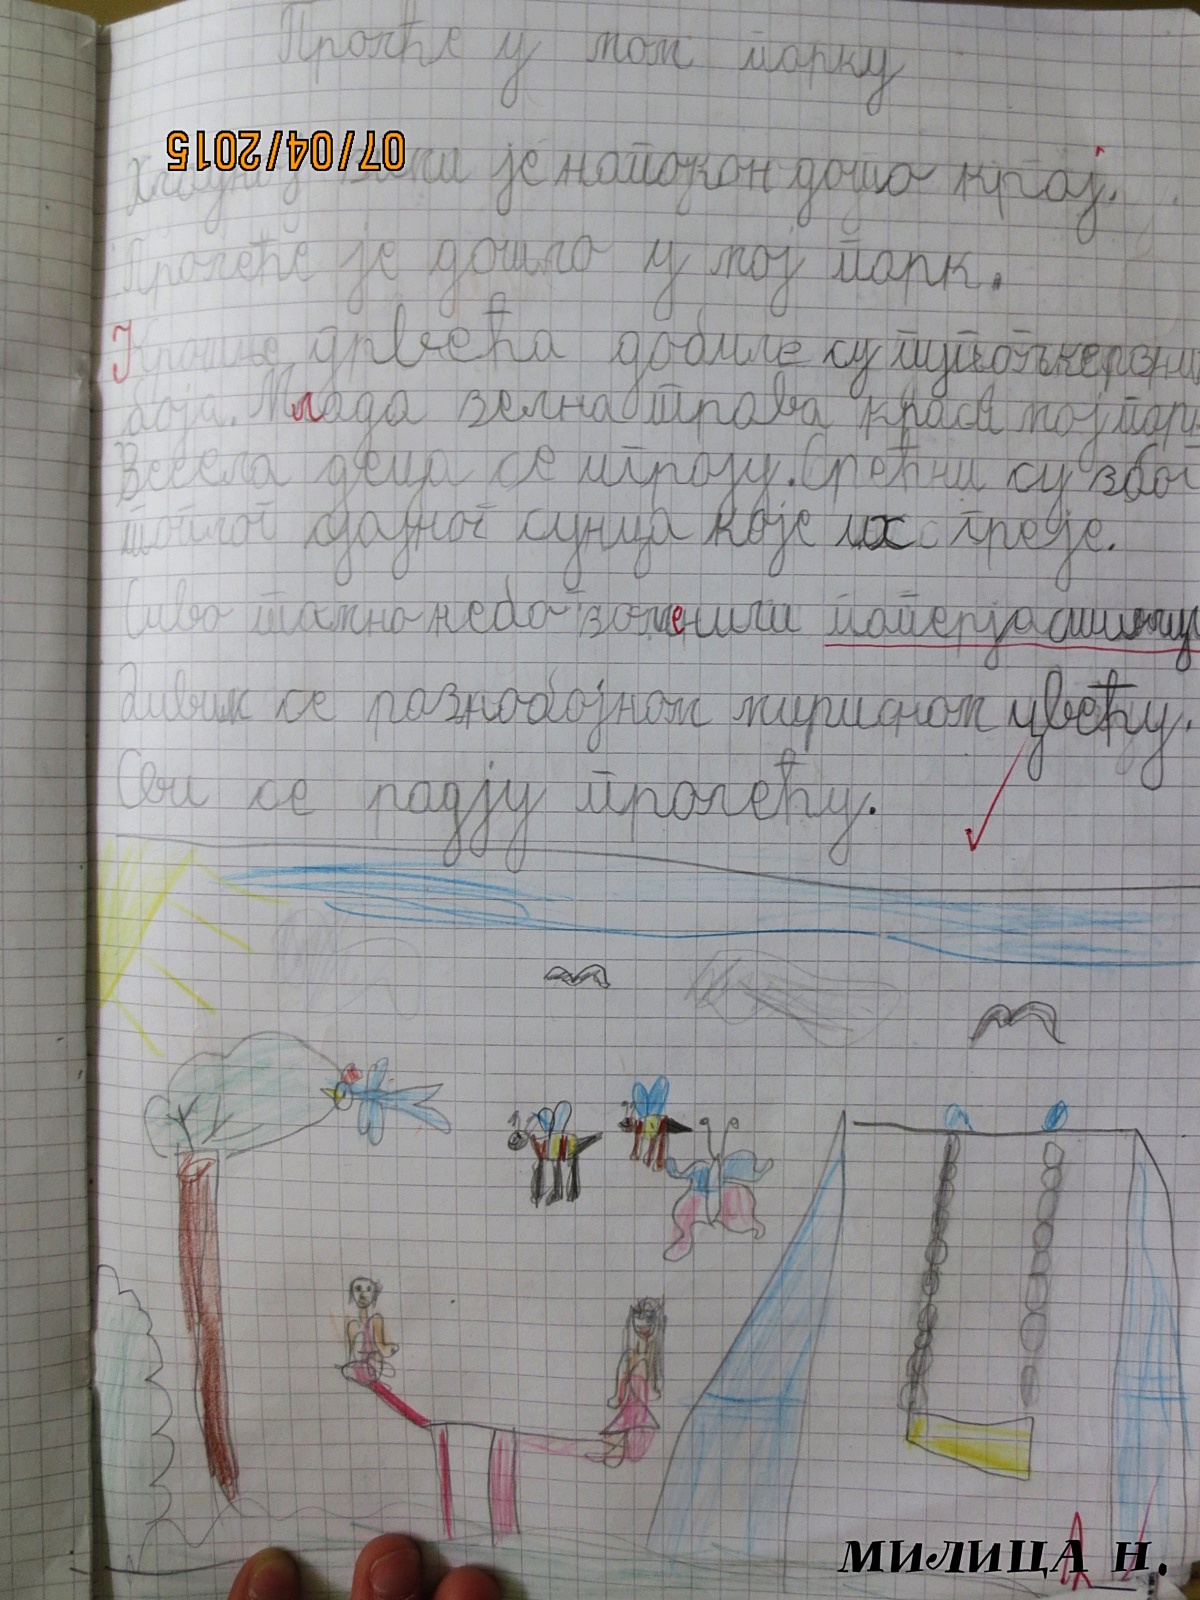 Пролеће у мом парку
07/04/2015
Хладној зими је напокон дошо крај.
Пролеће је дошло у мој парк.
Крошње дрвећа добиле су
боја. Млада зелна трава краси мој парк
Весела деца се играју. Срећни су због
топлог сјајног сунца које их греје.
Сиво тажно небо заменили
дивим се разнобојном мирисном цвећу.
Сви се радју пролећу.
МИЛИЦА Н.